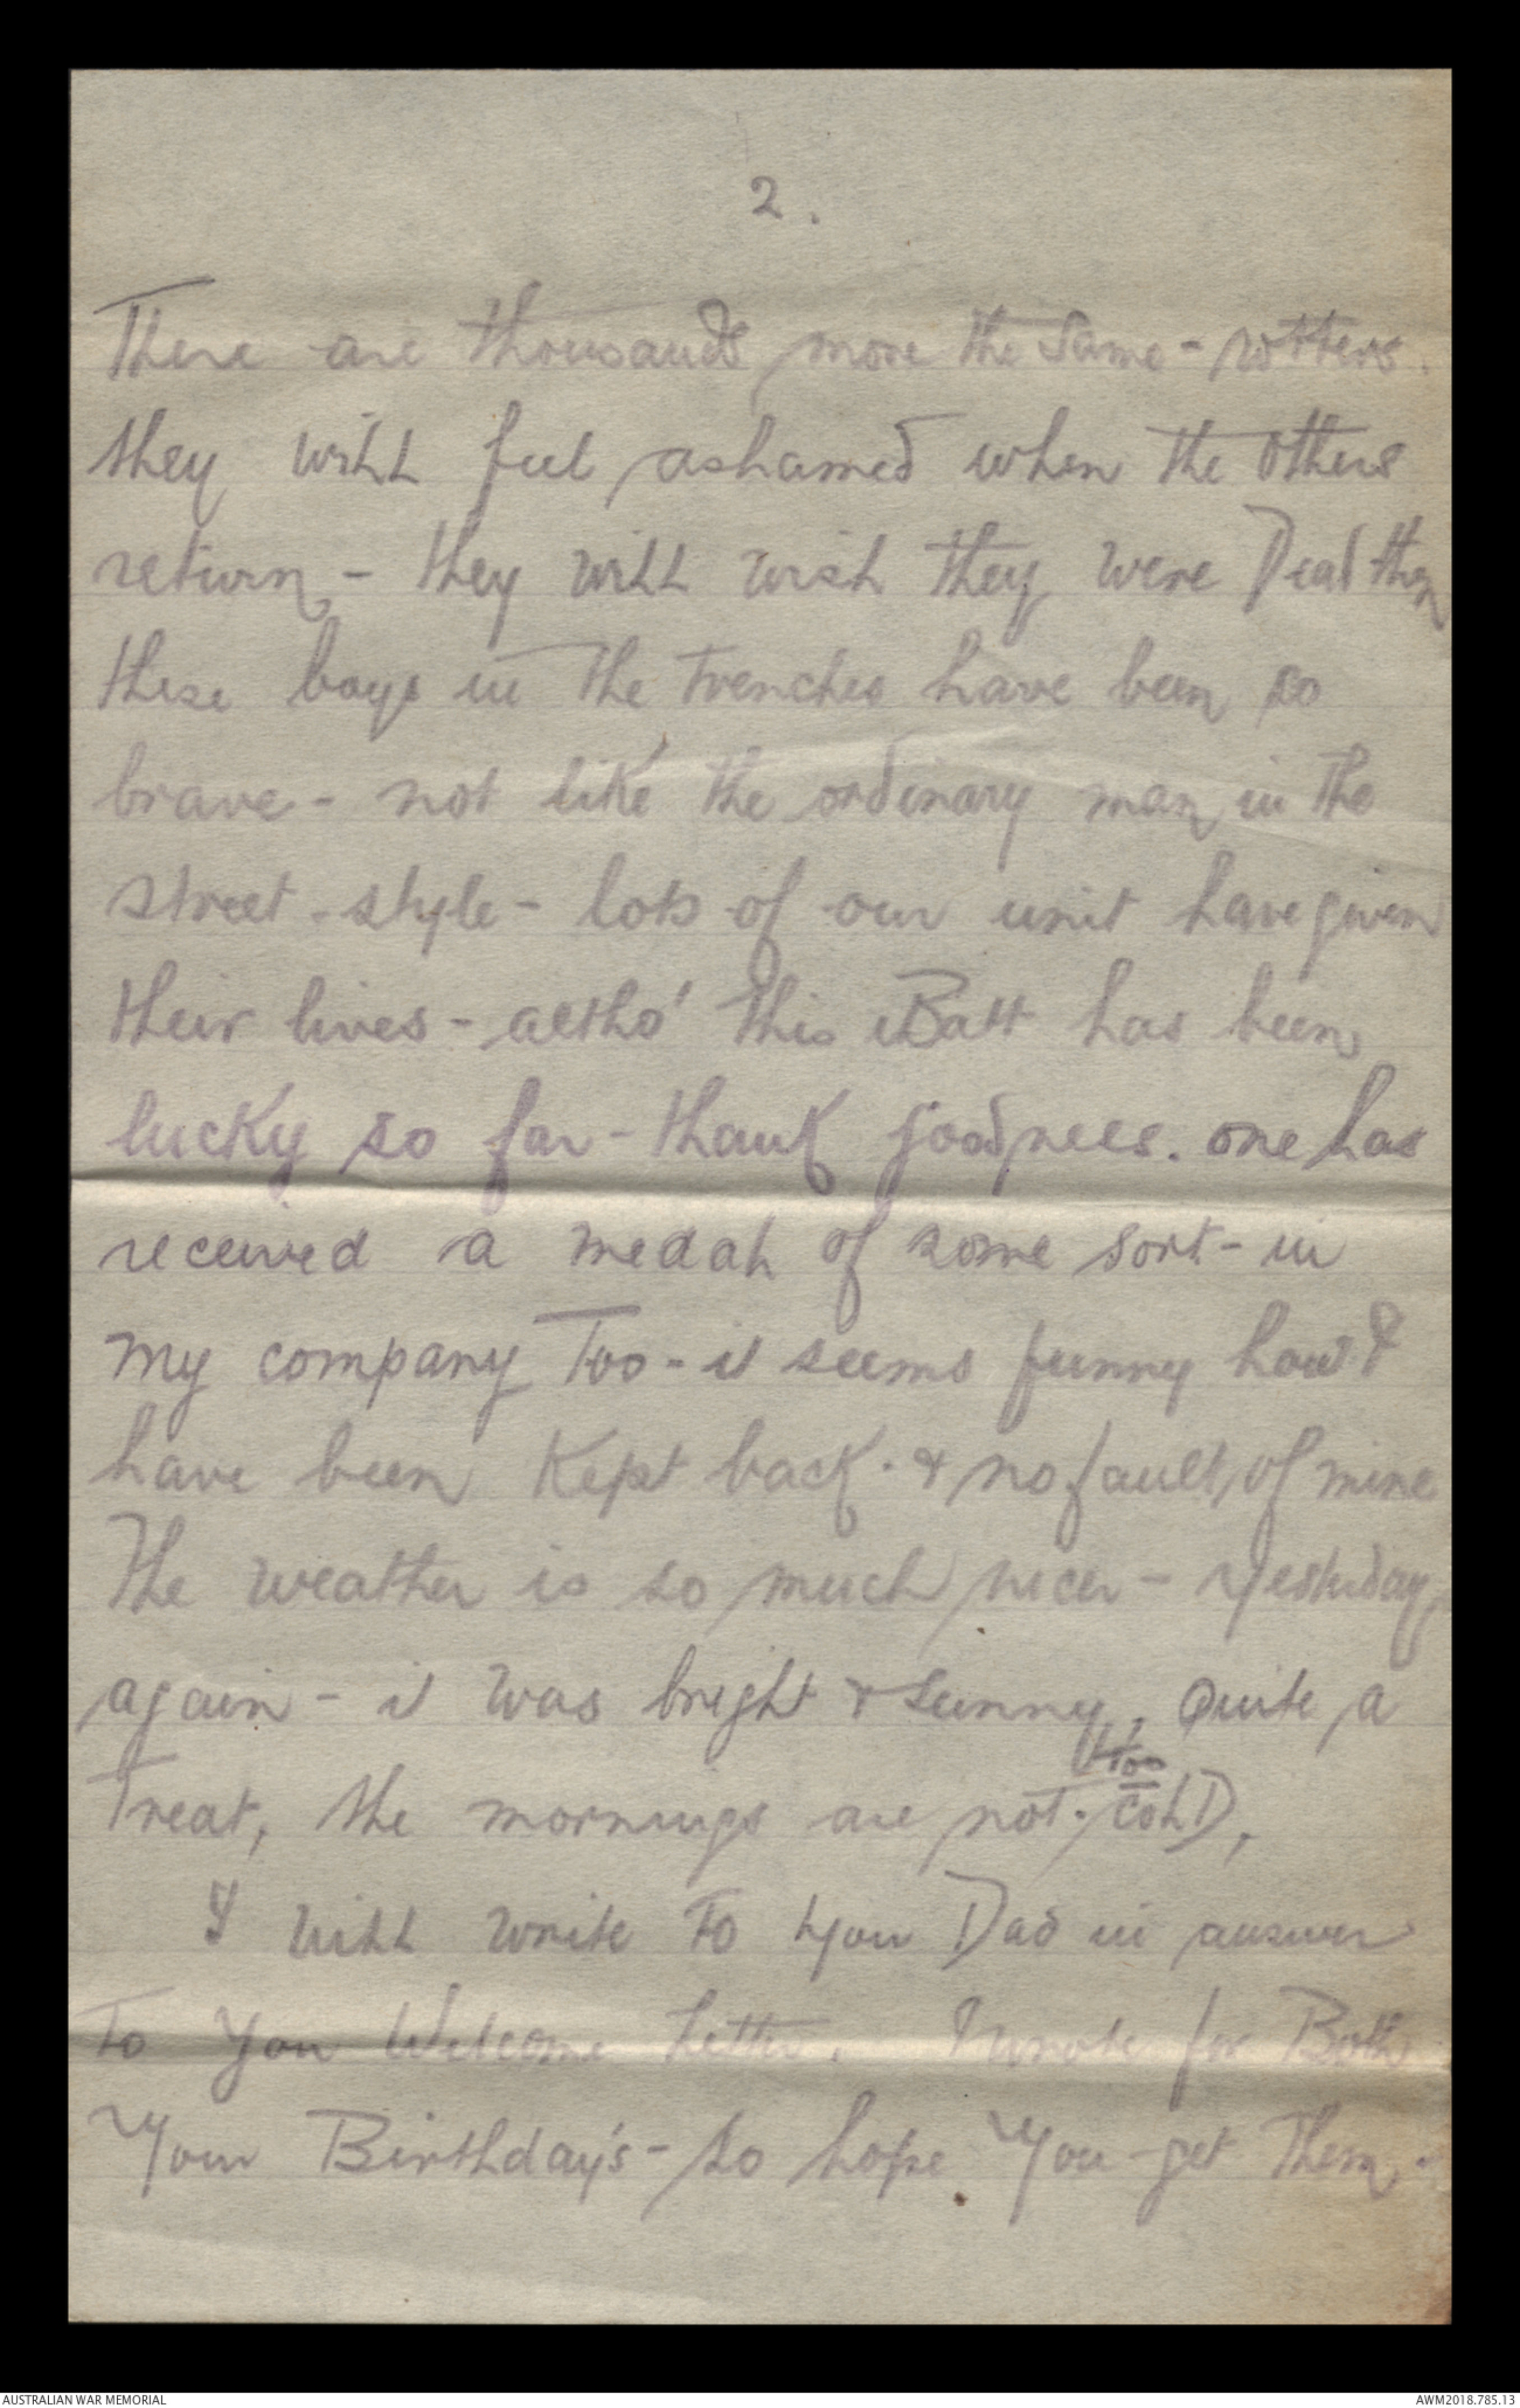 2.
There are thousands more the same - rotters.
they will feel ashamed when the others
return - they will wish they were Dead then
these boys in the trenches have been so
brave - not like the ordinary man in the
street - style - lots of our unit have given
their lives - altho' this Batt has been
lucky so far - thank goodness. one has
received a medal of some sort - in
my company Too - it seems funny how I
have been Kept back. & no fault, of mine
The weather is so much nicer - yesterday
again - it was bright & sunny. Quite a
Treat, the mornings are not too cold,
I will write to you Dad in answer
To your Welcome Letter. I wrote for Both
Your Birthday's - so hope You get Them.
AUSTRALIAN WAR MEMORIAL
AWM2018.785.13